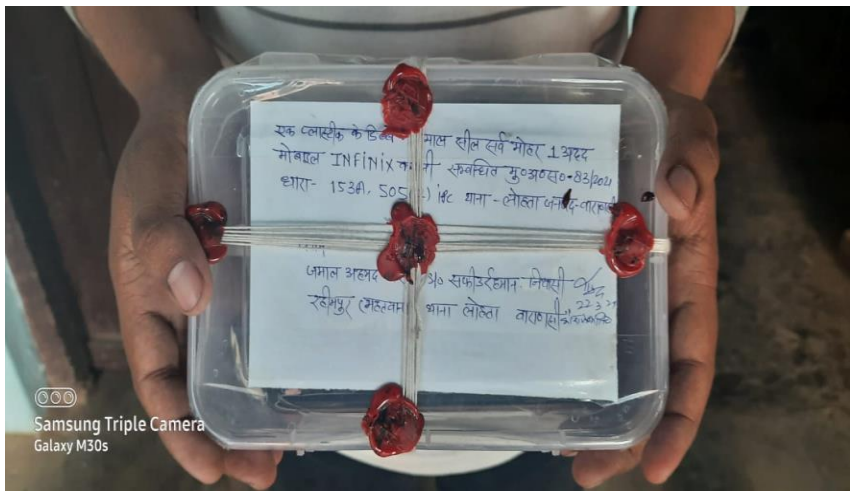 एक प्लास्टीक के डिब्बे माल सील सर्व मोहर 1 अदद
मोबाइल INFiNiX सम्बन्धित मु०अ०स०-83/2021
धारा- 153A, 505 IPC थाना - लोहता जनपद-वाराणसी
जमाल अहमद S/o निवासी
रहीमपुर थाना लोहता वाराणसी
22.3.21
Samsung Triple Camera
Galaxy M30s